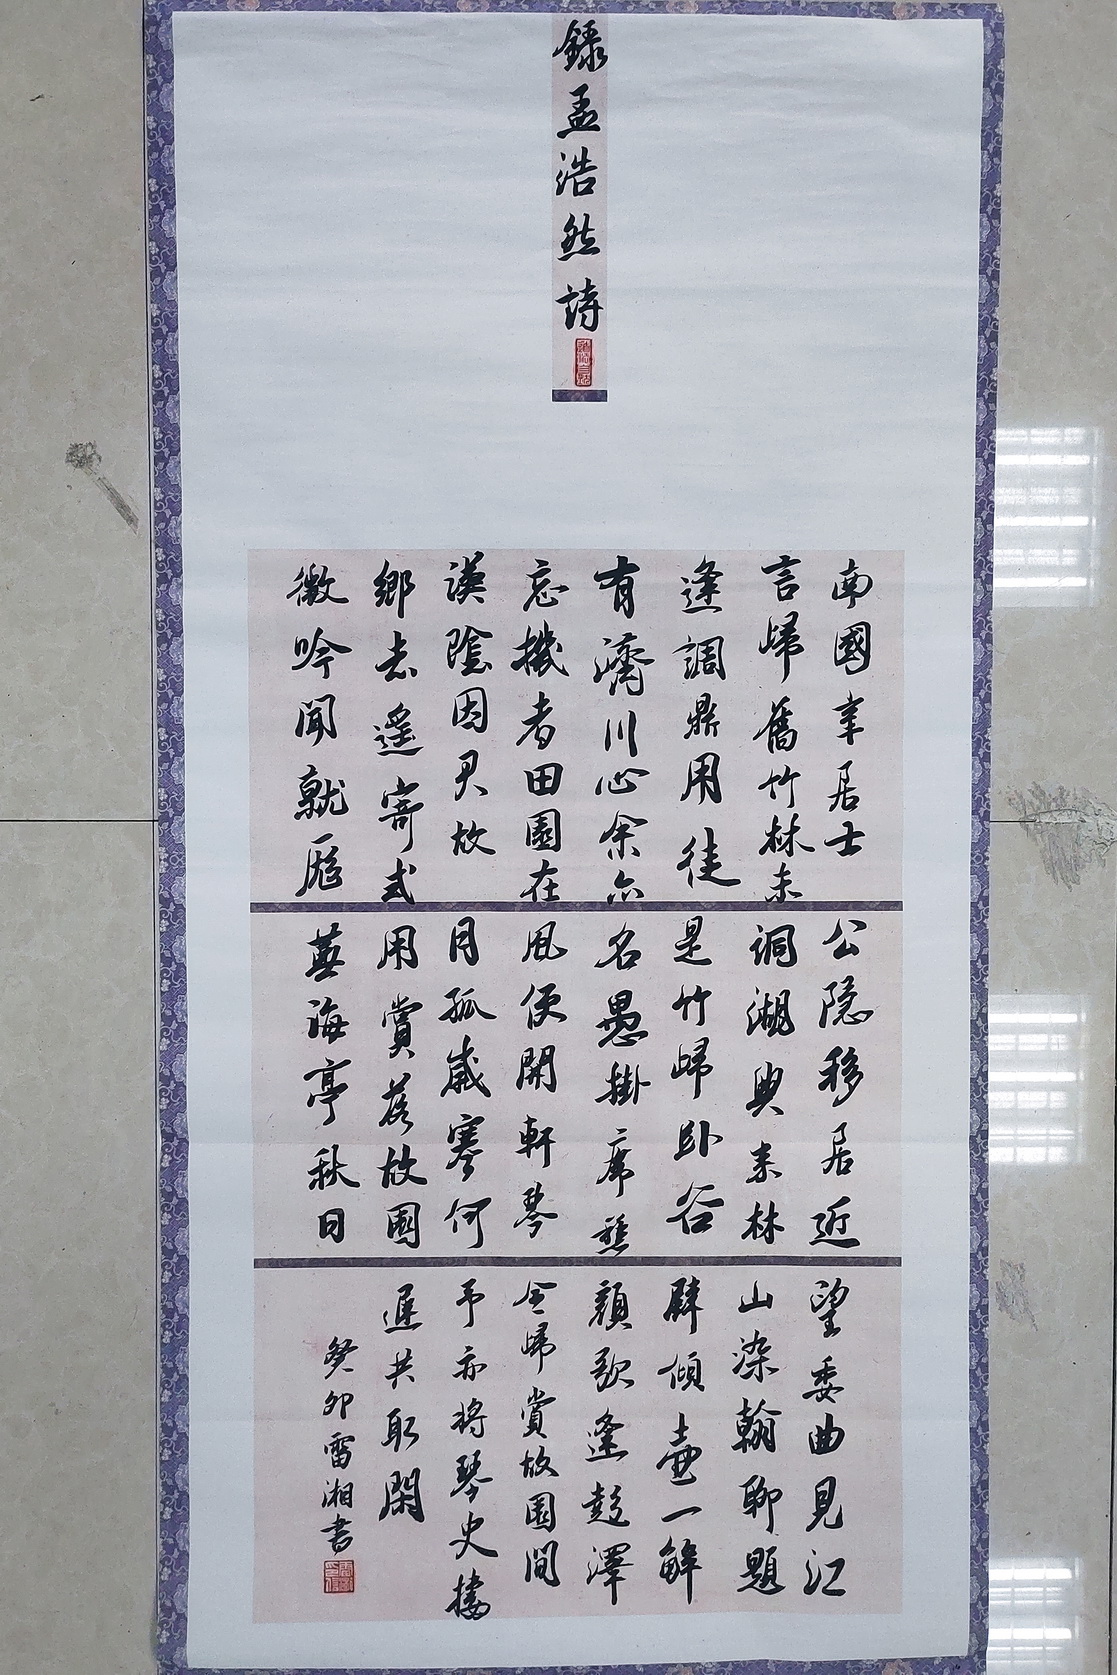 錄孟浩然詩
南國辛居士
言歸舊竹林未
逢調鼎用徒
有濟川心余亦
忘機者田園在
漢陰因君故
鄉去遙寄式
微吟聞就龐
公隱移居近
洞湖興來林
是竹歸臥谷
名愚掛席樵
風便開軒琴
月孤歲寒何
用賞落故園
蕪海亭秋日
望委曲見江
山染翰聊題
壁傾壺一解
顏歌逢彭澤
令歸賞故園間
予亦將琴史棲
遲共取閑
癸卯雷湘書